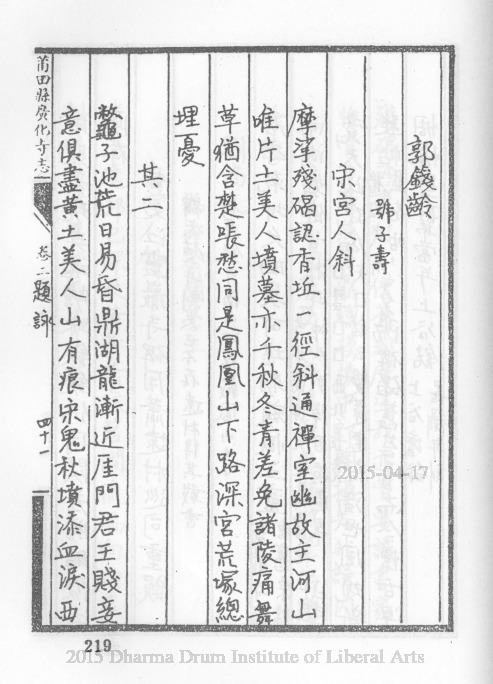 郭籛齡
號子壽
宋宮人斜
摩挲殘碣認香坵一徑斜通禪室幽故主河山
唯片土美人墳墓亦千秋冬青差免諸陵痛舞
草猶含楚帳愁同是鳳凰山下路深宮荒塚總
埋憂
其二
鼈子池荒日易昏鼎湖龍漸近厓門君王賤妾
意俱盡黃土美人山有痕宋鬼秋墳添血淚西
莆田縣廣化寺志
卷二題詠
四十一
2015-04-17
219
2015 Dharma Drum Institute of Liberal Arts